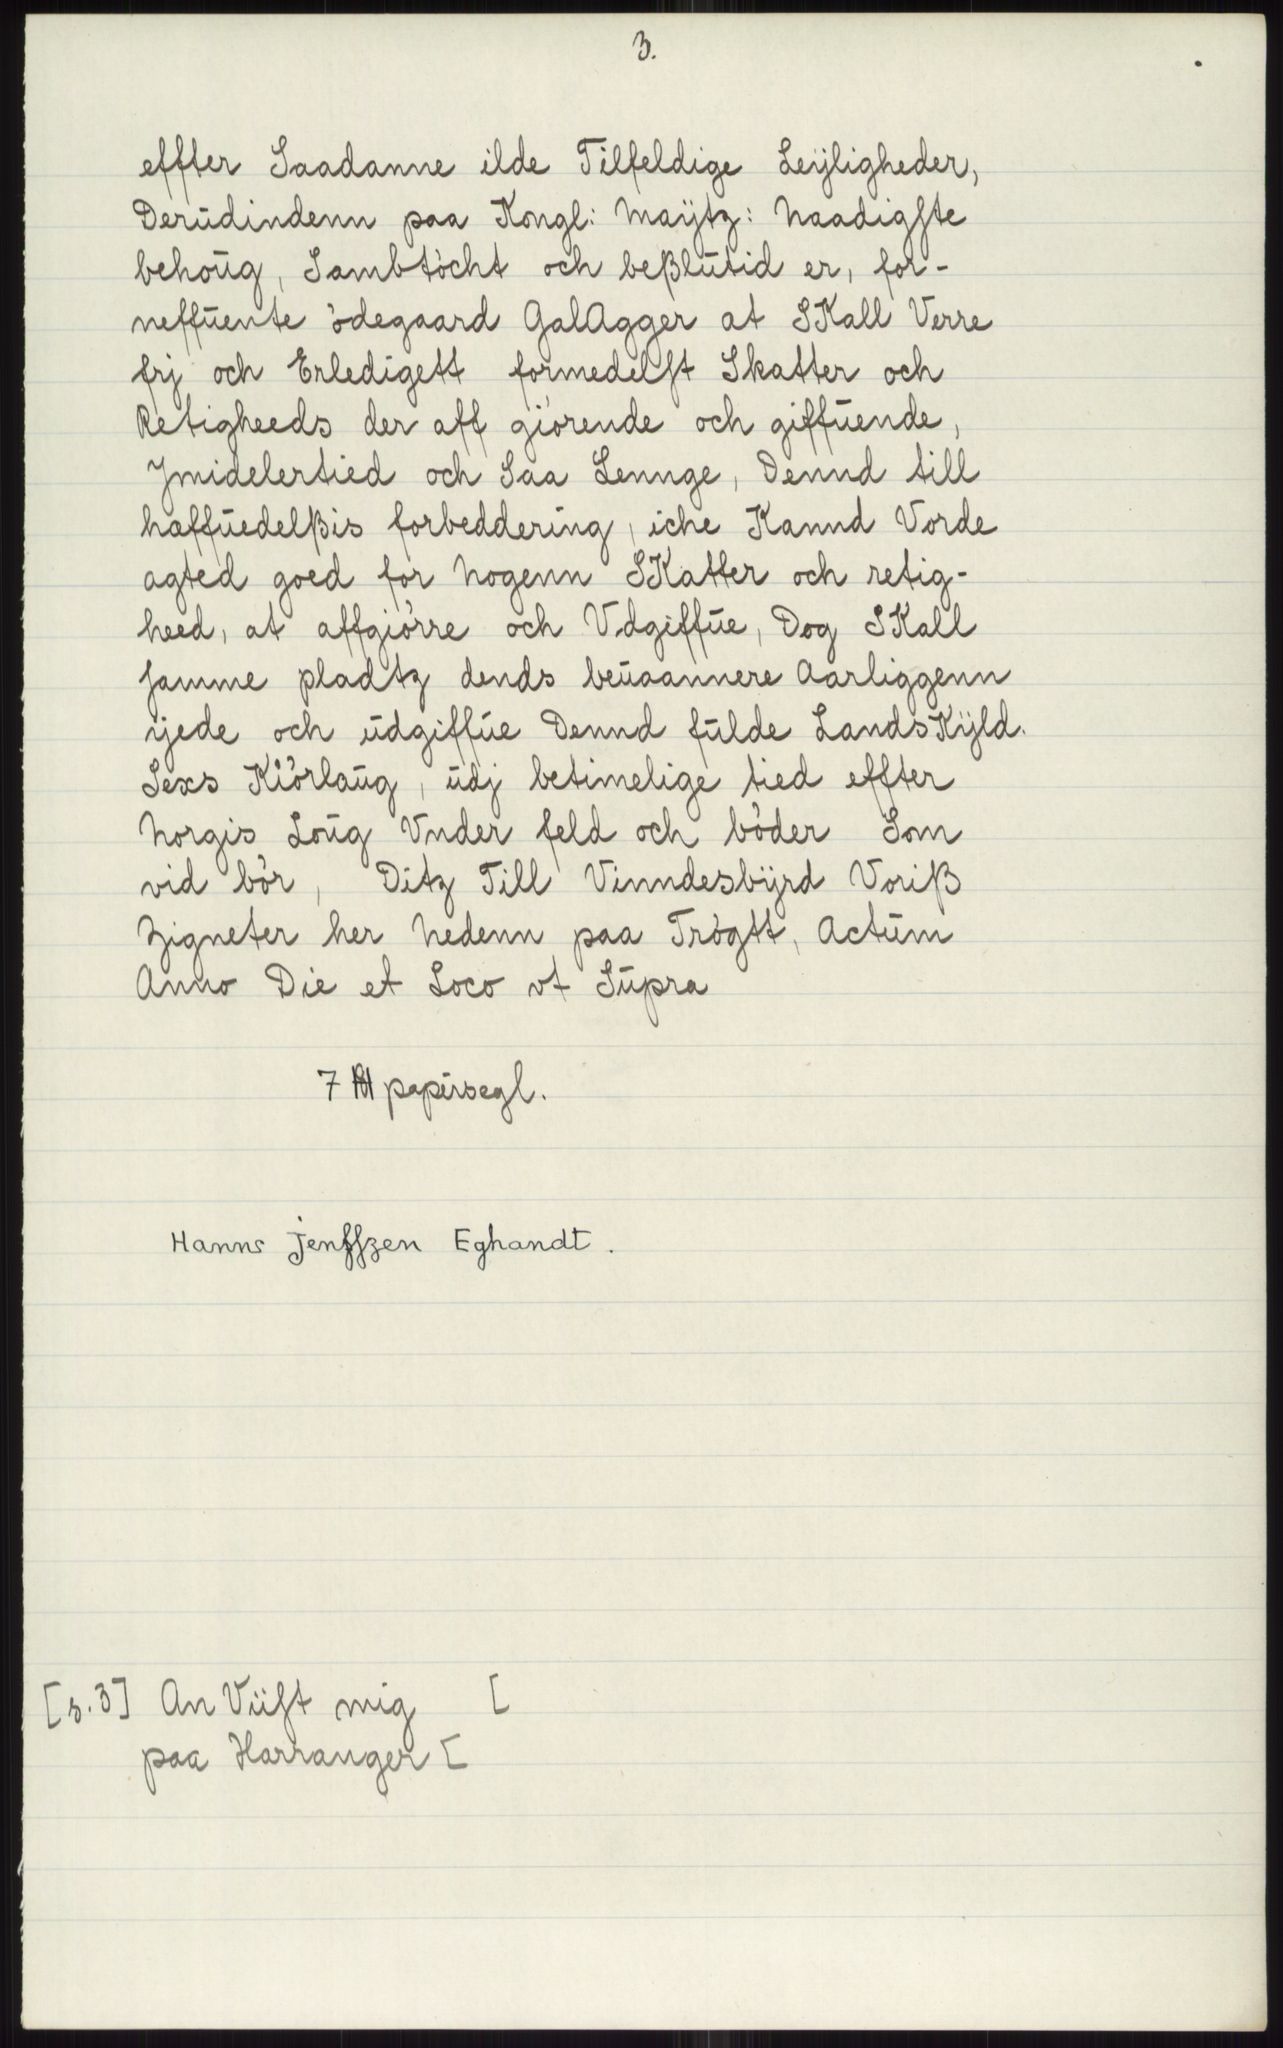 3.
effter Saadanne ilde Tilfeldige Leÿligheder,
Derūdindenn paa Kongl: Maÿtz: Naadigste
behoūg, Sambtöcht och beßlūtid er, for-
neffūente ödegaard GalAgger at SKall Verre
frj och Erledigett formedelst Skatter och
Retigheeds der aff giörende och giffūende,
Jmidelertied och Saa Lennge, Dennd till
haffūedelßis forbeddering, iche Kannd Vorde
agted goed for Nogenn SKatter och retig-
heed, at affgiörre och Vdgiffūe, Dog SKall
samme pladtz dends beūaannere Aarliggenn
ÿede och ūdgiffūe Dennd fūlde LandsKÿld.
Sexs Kiörlaūg, ūdj betimelige tied effter
Norgis Loūg Vnder feld och böder Som
vid bör, Ditz Till Vinndesbÿrd Voriß
Zigneter her Nedenn paa Trögtt, Actūm
Anno Die et Loco vt Sūpra
7 papirsegl.
Hanns Jensszen Eghandt.
[s.3] An Viist mig [
paa Harranger [